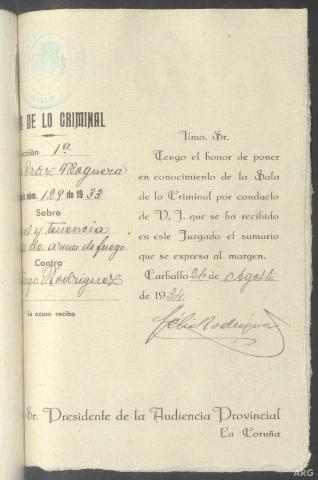 A DE LO CRIMINAL
cción 1ª
Ortiz Noguera
núm. 129 de 1933
Sobre
y tenencia
de arma de fuego
Contra
Rodríguez
la acuso recibo
Iimo. Sr.
Tengo el honor de poner
en conocimiento de la Sala
de lo Criminal por conducto
de V. I. que se ha recibido
en este Juzgado el sumario
que se expresa al margen.
Carballo 24 de Agosto
de 1934.
Félix Rodríguez
Sr. Presidente de la Audiencia Provincial
La Coruña
ARG